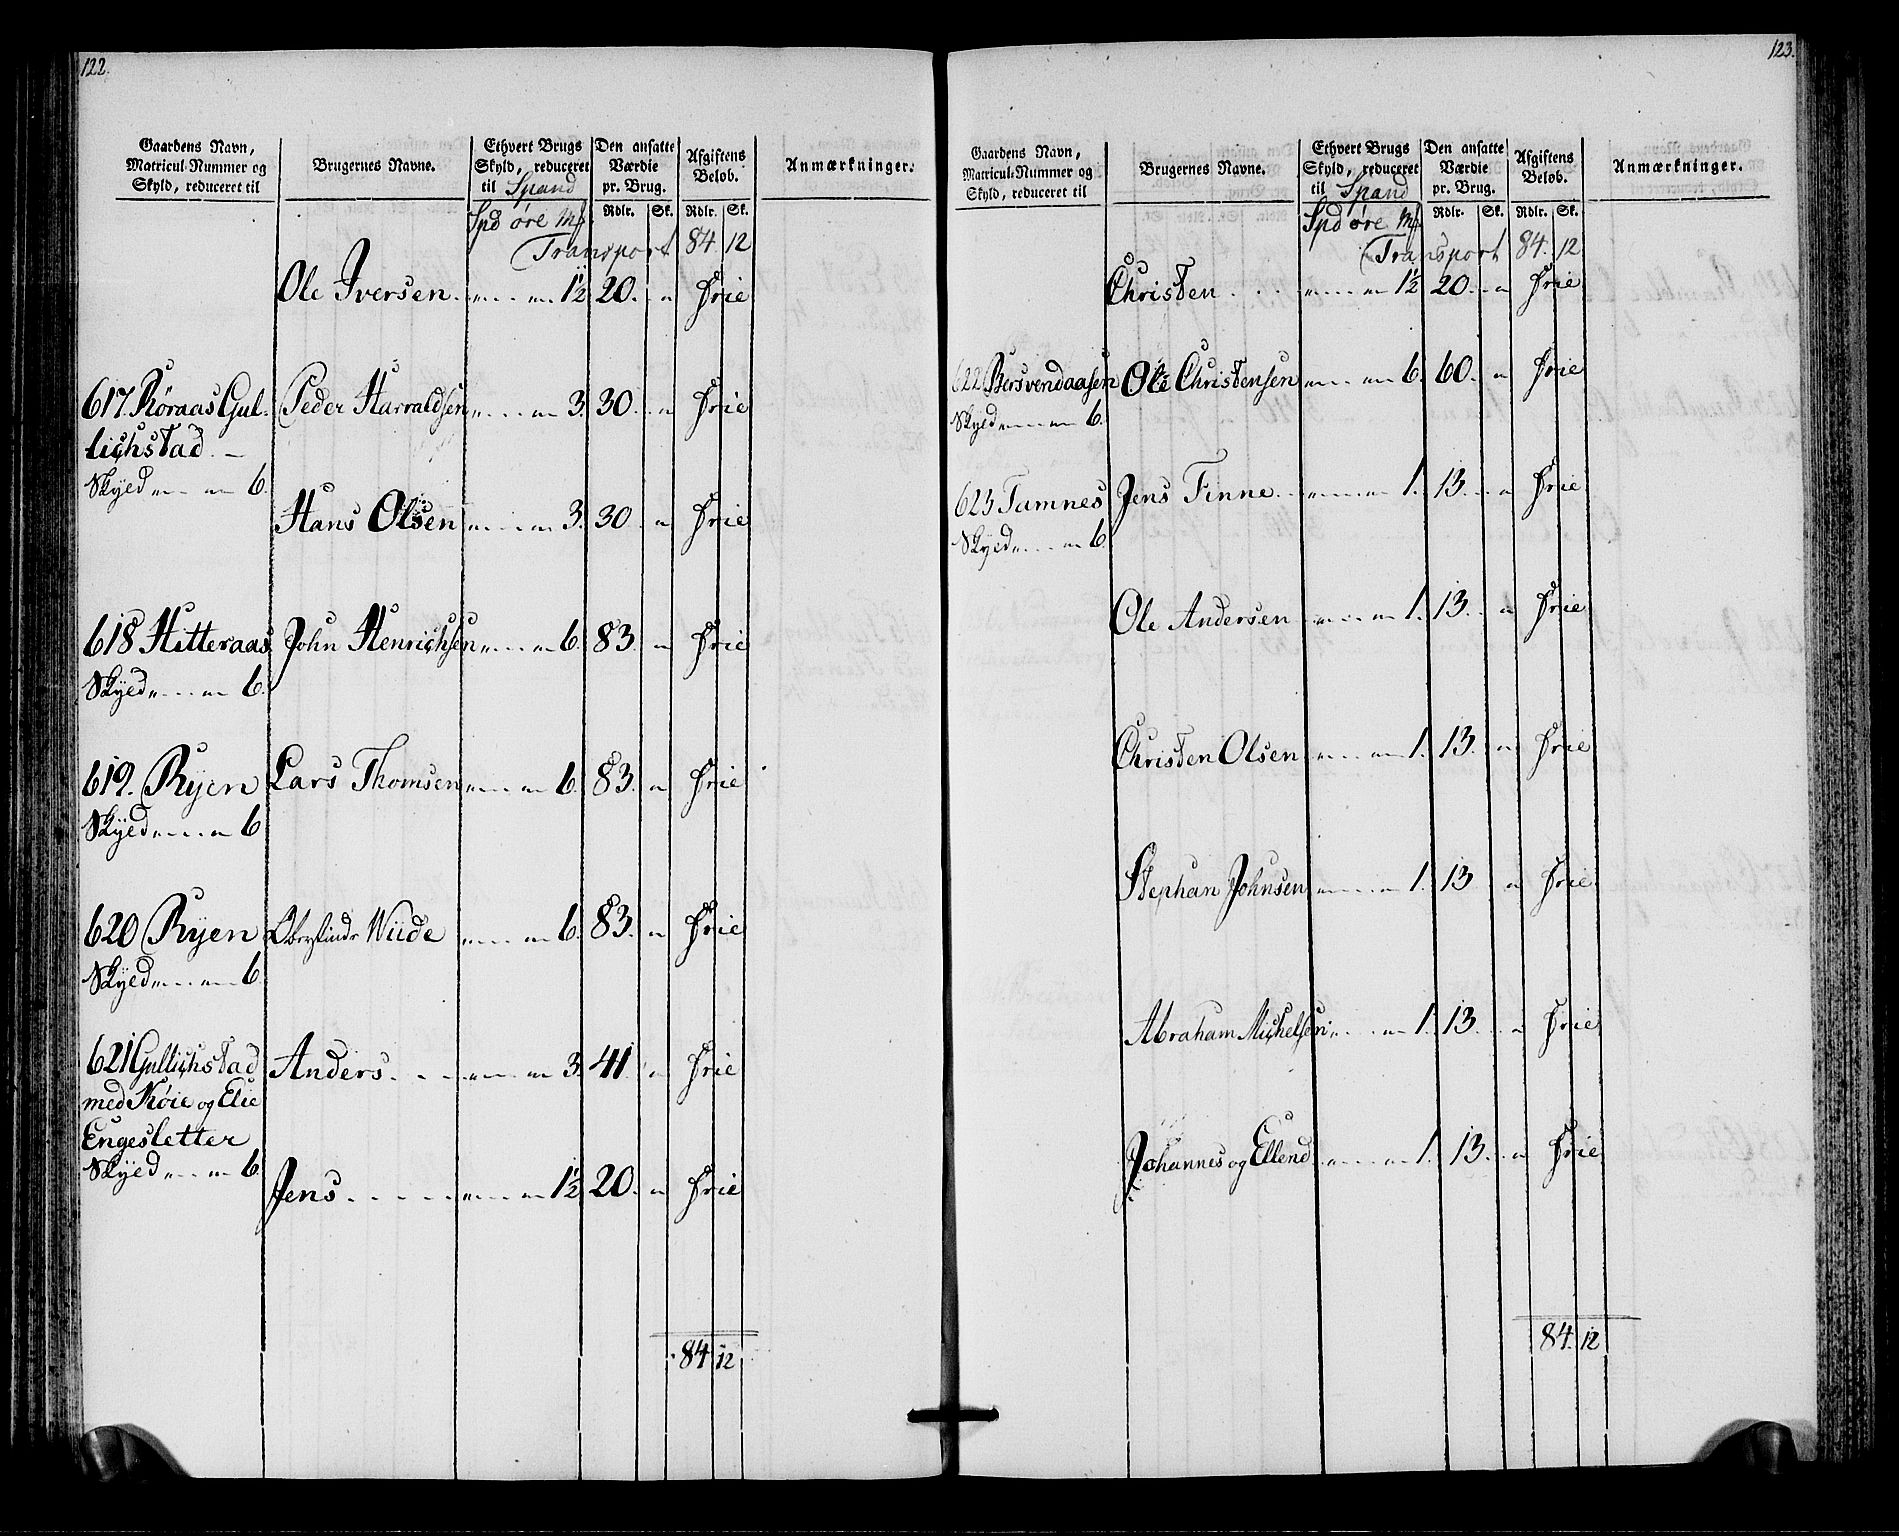 122.
Gaardens Navn, Matricul-Nummer og Skyld, reduceret til | Brugernes Navne. | Ethvert Brugs Skyld, reduceret til Spand | Den ansatte Værdie pr. Brug. | Afgiftens Beløb. | Anmærkninger.
Spd öre Mk | Rdlr. | Sk. | Rdlr. | Sk.
Transport 84. 12
Ole Iversen . „ . . . „ 1½ 20. . „ Frie
617. Röraas Gul- Peder Harraldsen „ . . . „ 3. 30. . „ Frie
lichstad. –
Skyld „ . . . „ 6.
Hans Olsen „ . . . „ 3. 30 . „ Frie
618 Hitteraas John Henrichsen „ . . . „ 6. 83. . „ Frie
Skyld „ . . . „ 6.
619. Ryen Lars Thomsen „ . . . „ 6. 83. . „ Frie
Skyld „ . . . „ 6
620 Ryen Wiide „ . . . „ 6. 83. . „ Frie
Skyld „ . . . „ 6
621 Gullichstad Anders . . . „ . . . „ 3. 41. „ Frie
med Köie og Elie
Engesletter
Skyld „ . . . „ 6.
Jens . . . . . „ . . . „ 1½ 20. . „ Frie
84. 12
123.
Gaardens Navn, Matricul-Nummer og Skyld, reduceret til | Brugernes Navne. | Ethvert Brugs Skyld, reduceret til Spand | Den ansatte Værdie pr. Brug. | Afgiftens Beløb. | Anmærkninger.
Spd öre Mk | Rdlr. | Sk. | Rdlr. | Sk.
Transport 84. 12
Christen . . . . „ . . . „ 1½ 20. . „ Frie
622 Bersvendaasen Ole Christensen „ . . . „ 6. 60. . „ Frie
Skyld „ . . . „ 6.
623 Tamnes Jens Finne . . „ . . . „ 1. 13. . . „ Frie
Skyld „ . . . „ 6
Ole Andersen „ . . . „ 1. 13. . „ Frie
Christen Olsen „ . . . „ 1. 13. . „ Frie
Stephan Johnsen „ . . . „ 1. 13 „ Frie
Abraham Michelsen „ . . . „ 1. 13. . „ Frie
Johannes og Ellend „ . . . „ 1. 13. . „ Frie
84. 12